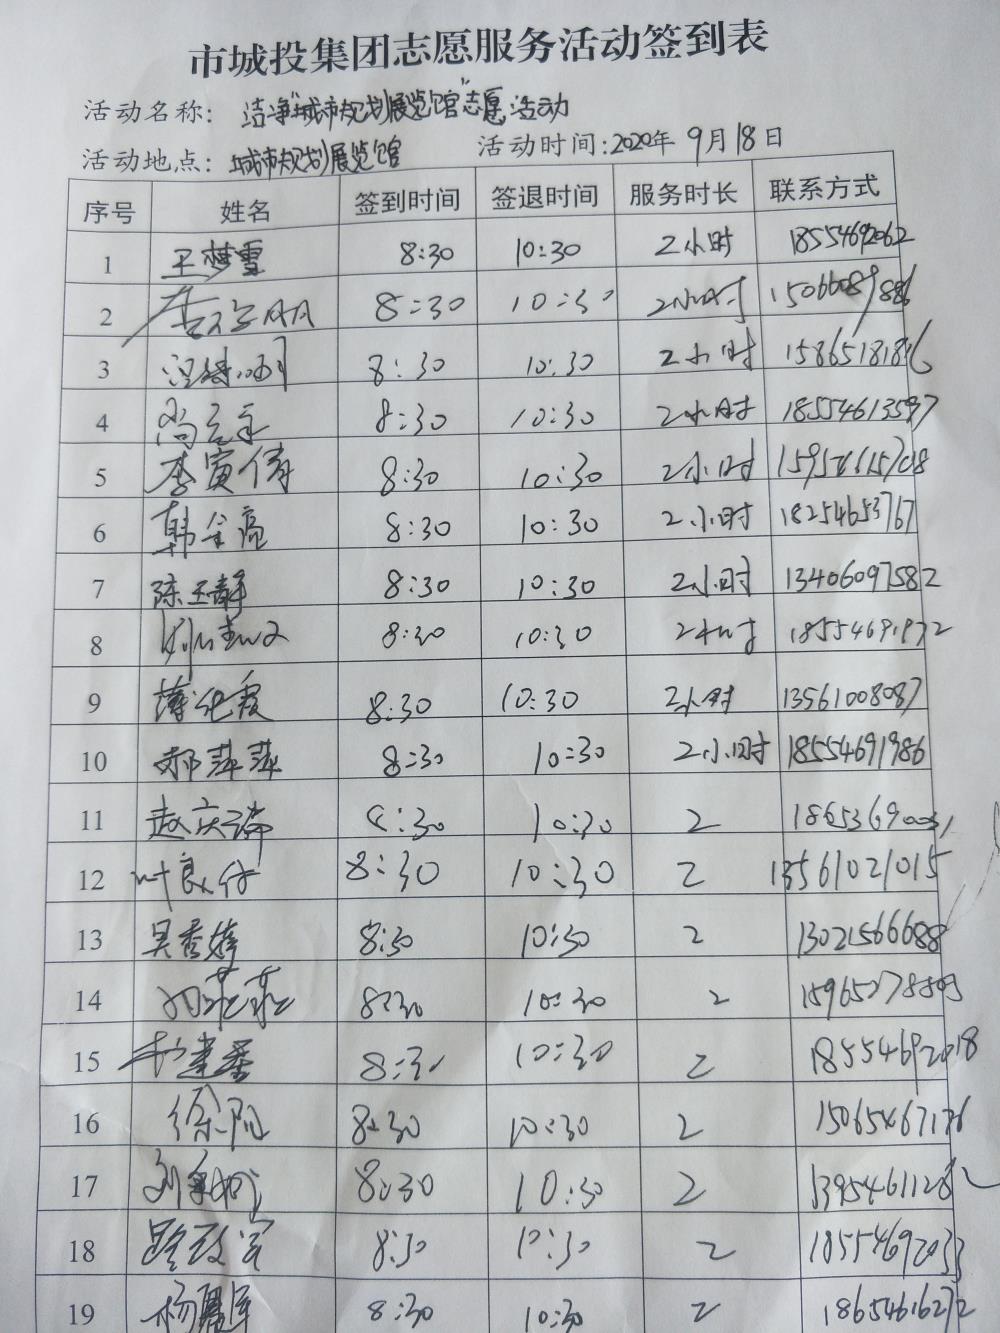 市城投集团志愿服务活动签到表
活动名称: 洁净"城市规划展览馆"志愿活动
活动地点: 城市规划展览馆 活动时间:2020年 9月18日
序号 姓名 签到时间 签退时间 服务时长 联系方式
1 王梦雪 8:30 10:30 2小时 18554692062
2 8:30 10:30 2小时 15066089886
3 8:30 10:30 2小时
4 8:30 10:30 2小时 18554613597
5 李寅倩 8:30 10:30 2小时
6 韩全亮 8:30 10:30 2小时 18254653767
7 陈玉静 8:30 10:30 2小时 13406097582
8 8:30 10:30 2小时
9 薄纯霞 8:30 10:30 2小时 13561008087
10 郝萍萍 8:30 10:30 2小时 18554691986
11 赵庆瑞 8:30 10:30 2
12 叶良付 8:30 10:30 2 13561021015
13 吴秀婷 8:30 10:30 2 13021566688
14 菲菲 8:30 10:30 2
15 8:30 10:30 2 18554692018
16 徐阳 8:30 10:30 2
17 刘 8:30 10:30 2 13954611286
18 路政宝 8:30 10:30 2 18554692033
19 杨 8:30 10:30 2 18654616272